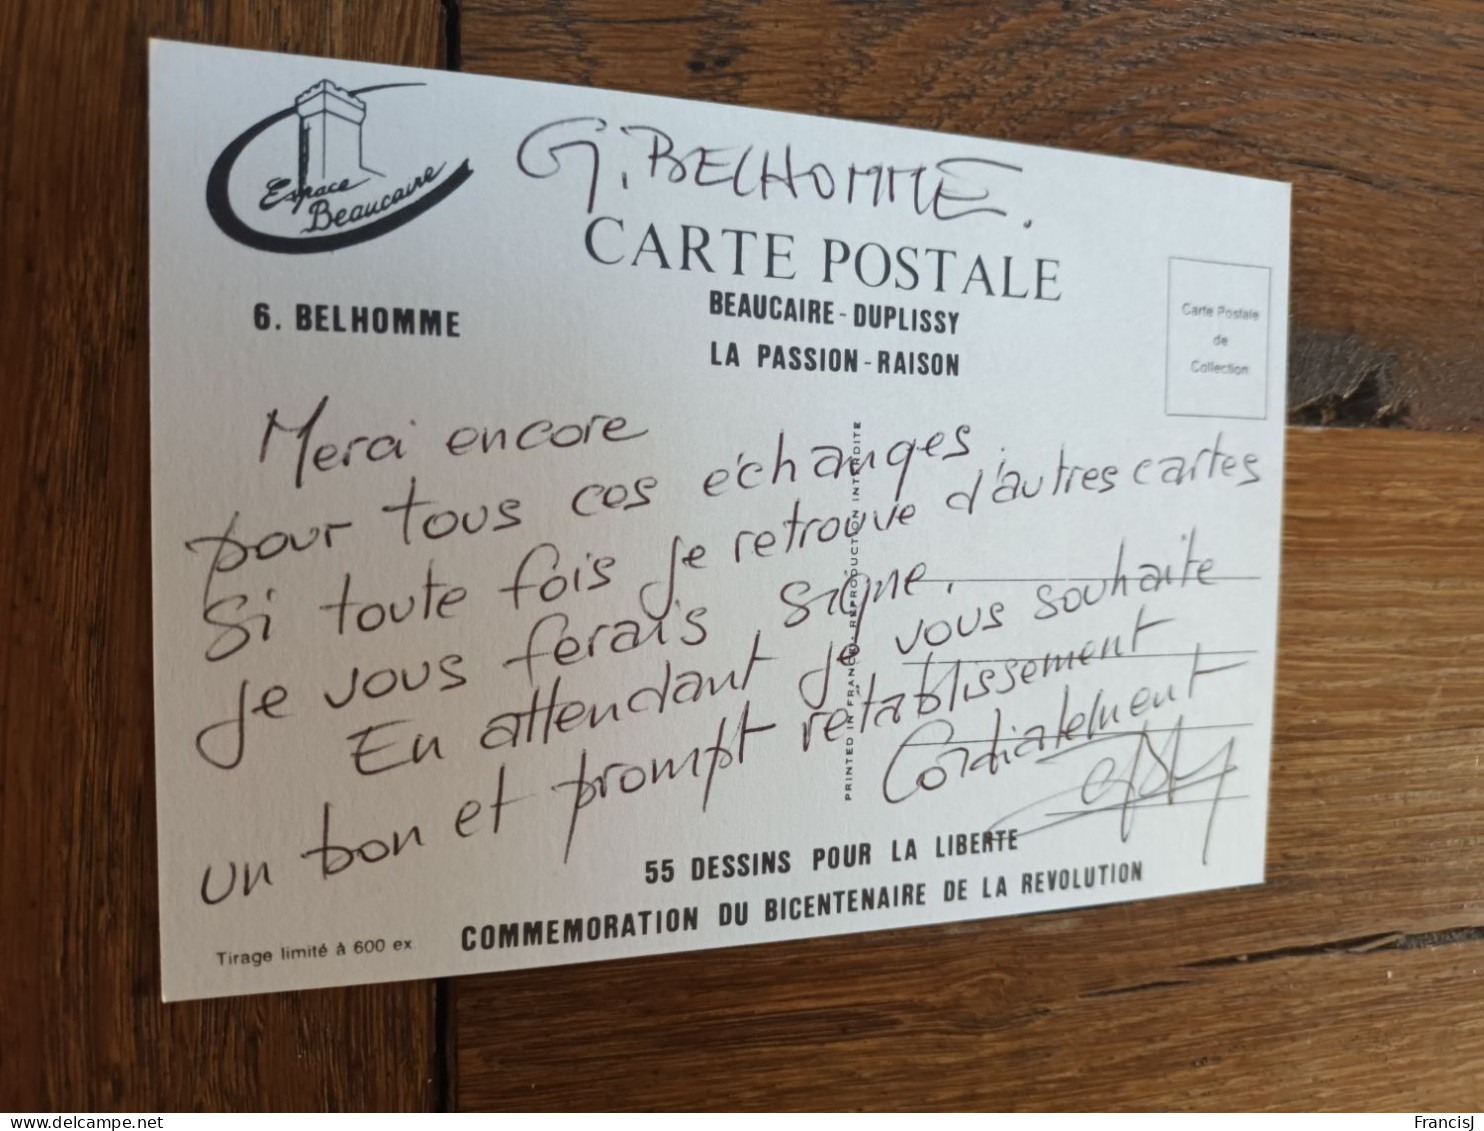 Espace
Beaucaire
G. BELHOMME.
CARTE POSTALE
6. BELHOMME
BEAUCAIRE - DUPLISSY
LA PASSION - RAISON
Carte Postale
de
Collection
Merci encore
pour tous ces échanges.
Si toute fois je retrouve d'autres cartes
Je vous ferais signe.
En attendant je vous souhaite
un bon et prompt rétablissement
Cordialement
PRINTED IN FRANCE / REPRODUCTION INTERDITE
55 DESSINS POUR LA LIBERTE
COMMEMORATION DU BICENTENAIRE DE LA REVOLUTION
Tirage limité à 600 ex
FrancisJ